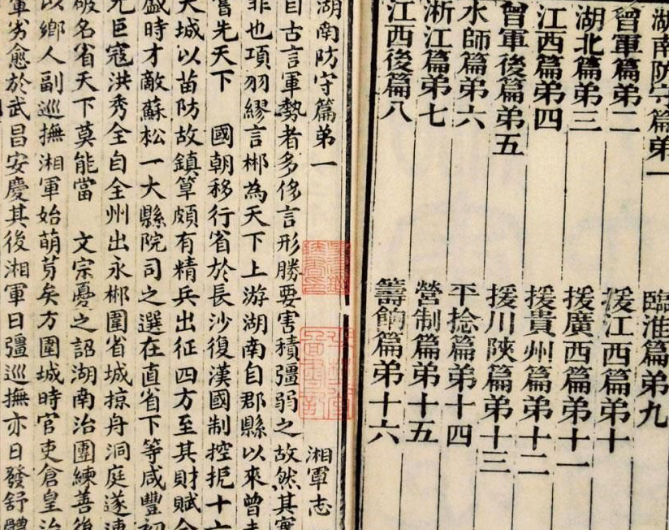 湖南防守篇弟一 臨淮篇弟九
曾軍篇弟二 援江西篇弟十
湖北篇弟三 援廣西篇弟十一
江西篇弟四 援貴州篇弟十二
曾軍後篇弟五 援川陝篇弟十三
水師篇弟六 平捻篇弟十四
浙江篇弟七 營制篇弟十五
江西後篇八 籌餉篇弟十六
湖南防守篇弟一 湘軍志
自古言軍勢者多侈言形勝要害積彊弱之故然其寔
非也項羽繆言郴為天下上游湖南自郡縣以來曾未
嘗先天下 國朝移行省於長沙復漢國制控扼十六
大城以苗防故鎮筸頗有精兵出征四方至其財賦全
盛時才敵蘇松一大縣院司之選在直省下等咸豐初
元巨寇洪秀全自全州出永郴圍省城掠舟洞庭遂連
破名省天下莫能當 文宗憂之詔湖南治團練善後
以鄉人副巡撫湘軍始萌芽矣方圍城時官吏倉皇治
軍劣愈於武昌安慶其後湘軍日彊巡撫亦日發舒體